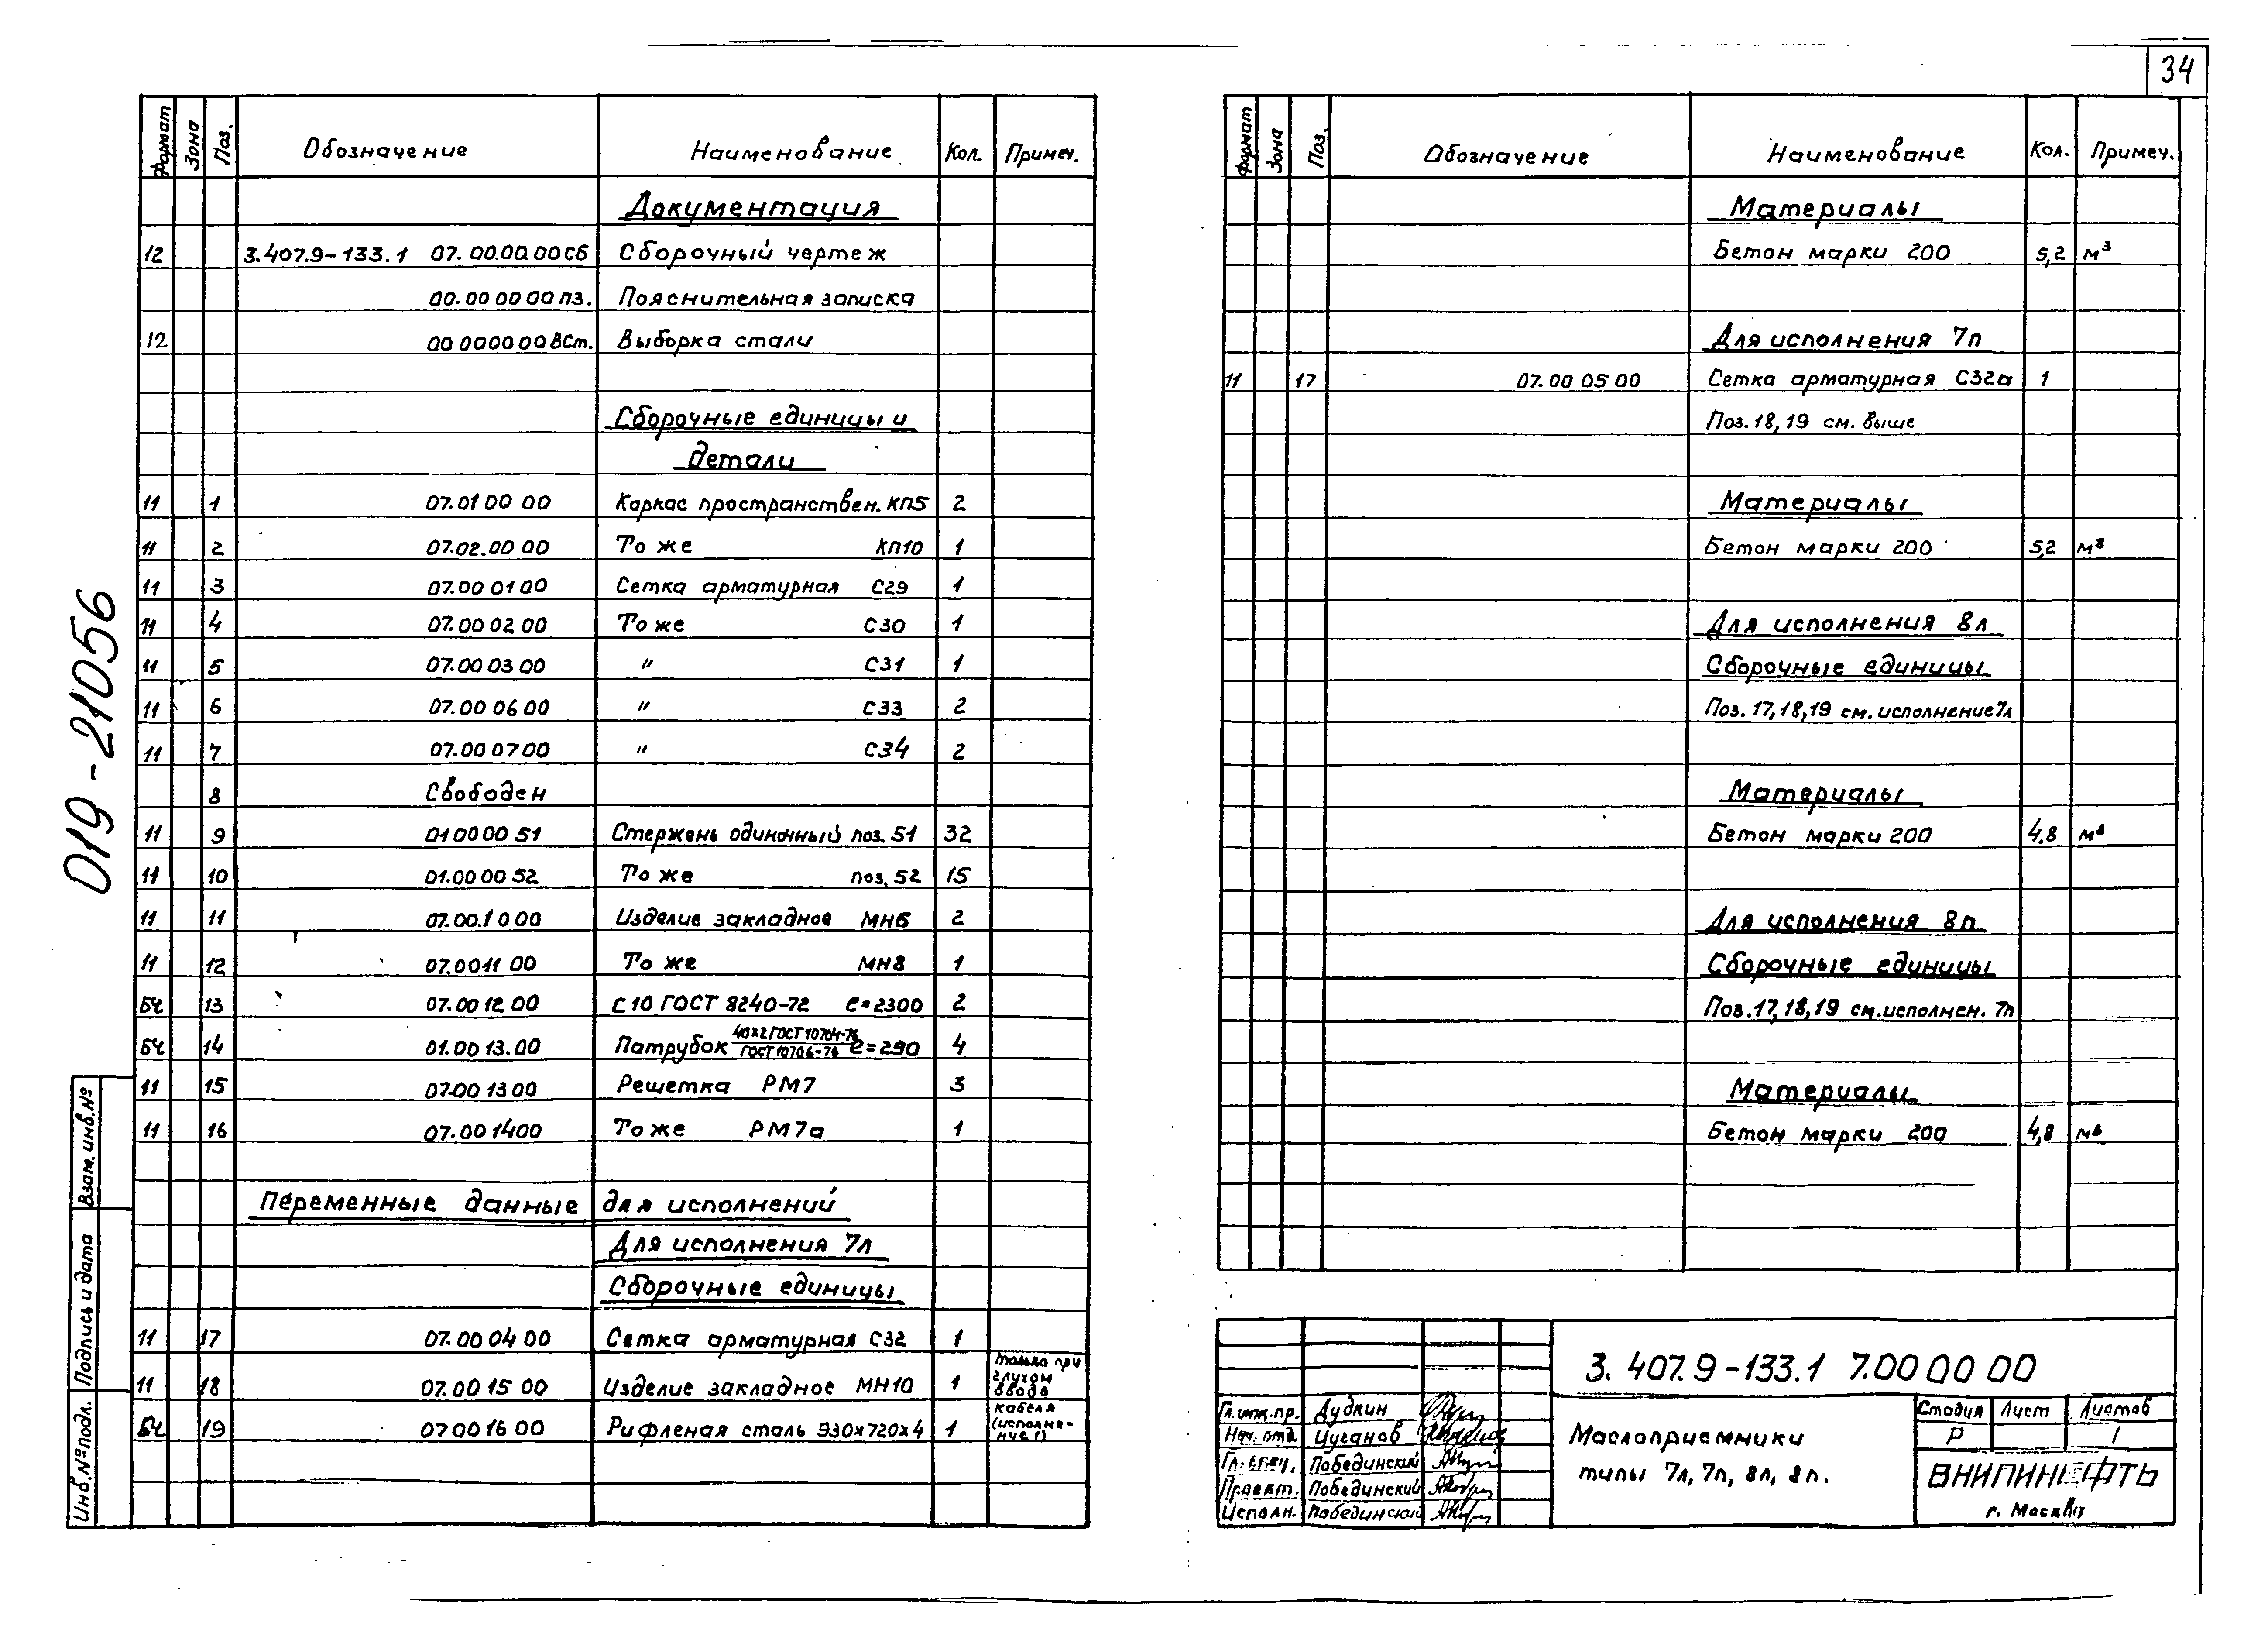 34
Формат Зона Поз. Обозначение Наименование Кол. Примеч.
Документация
12 3.407.9-133.1 07.00.00.00СБ Сборочный чертеж
00.00 00 00 ПЗ. Пояснительная записка
12 00 00 00 00 ВСт. Выборка стали
Сборочные единицы и
детали
11 1 07.01 00 00 Каркас пространствен. КП5 2
11 2 07.02.00 00 То же КП10 1
11 3 07.00 01 00 Сетка арматурная С29 1
11 4 07.00 02 00 То же С30 1
11 5 07.00 03 00 " С31 1
11 6 07.00 06 00 " С33 2
11 7 07.00 07 00 " С34 2
8 Свободен
11 9 01 00 00 51 Стержень одиночный поз. 51 32
11 10 01.00 00 52 То же поз. 52 15
11 11 07.00.10 00 Изделие закладное МН6 2
11 12 07.00 11 00 То же МН8 1
БЧ 13 07.00 12 00 С 10 ГОСТ 8240-72 ℓ=2300 2
БЧ 14 01.00 13.00 Патрубок 40×2 ГОСТ 10704-76 / ГОСТ 10706-76 ℓ=290 4
11 15 07.00 13 00 Решетка РМ7 3
11 16 07.00 14 00 То же РМ7а 1
Переменные данные для исполнений
Для исполнения 7л
Сборочные единицы
11 17 07.00 04 00 Сетка арматурная С32 1
11 18 07.00 15 00 Изделие закладное МН10 1 только при глухом вводе
БЧ 19 07 00 16 00 Рифленая сталь 930×720×4 1 кабеля (исполнение 1)
019-21056
Взам. инв. №
Подпись и дата
Инв. № подл.
Формат Зона Поз. Обозначение Наименование Кол. Примеч.
Материалы
Бетон марки 200 5,2 м³
Для исполнения 7п
11 17 07.00 05 00 Сетка арматурная С32а 1
Поз. 18, 19 см. выше
Материалы
Бетон марки 200 5,2 м³
Для исполнения 8л
Сборочные единицы
Поз. 17, 18, 19 см. исполнение 7л
Материалы
Бетон марки 200 4,8 м³
Для исполнения 8п
Сборочные единицы
Поз. 17, 18, 19 см. исполнен. 7п
Материалы
Бетон марки 200 4,8 м³
3.407.9-133.1 7.00 00 00
Гл. инж. пр. Дудкин
Нач. отд. Цуганов
Гл. спец. Побединский
Проект. Побединский
Исполн. Побединский
Маслоприемники
типы 7л, 7п, 8л, 8п.
Стадия Лист Листов
Р 1
ВНИПИНЕФТЬ
г. Москва